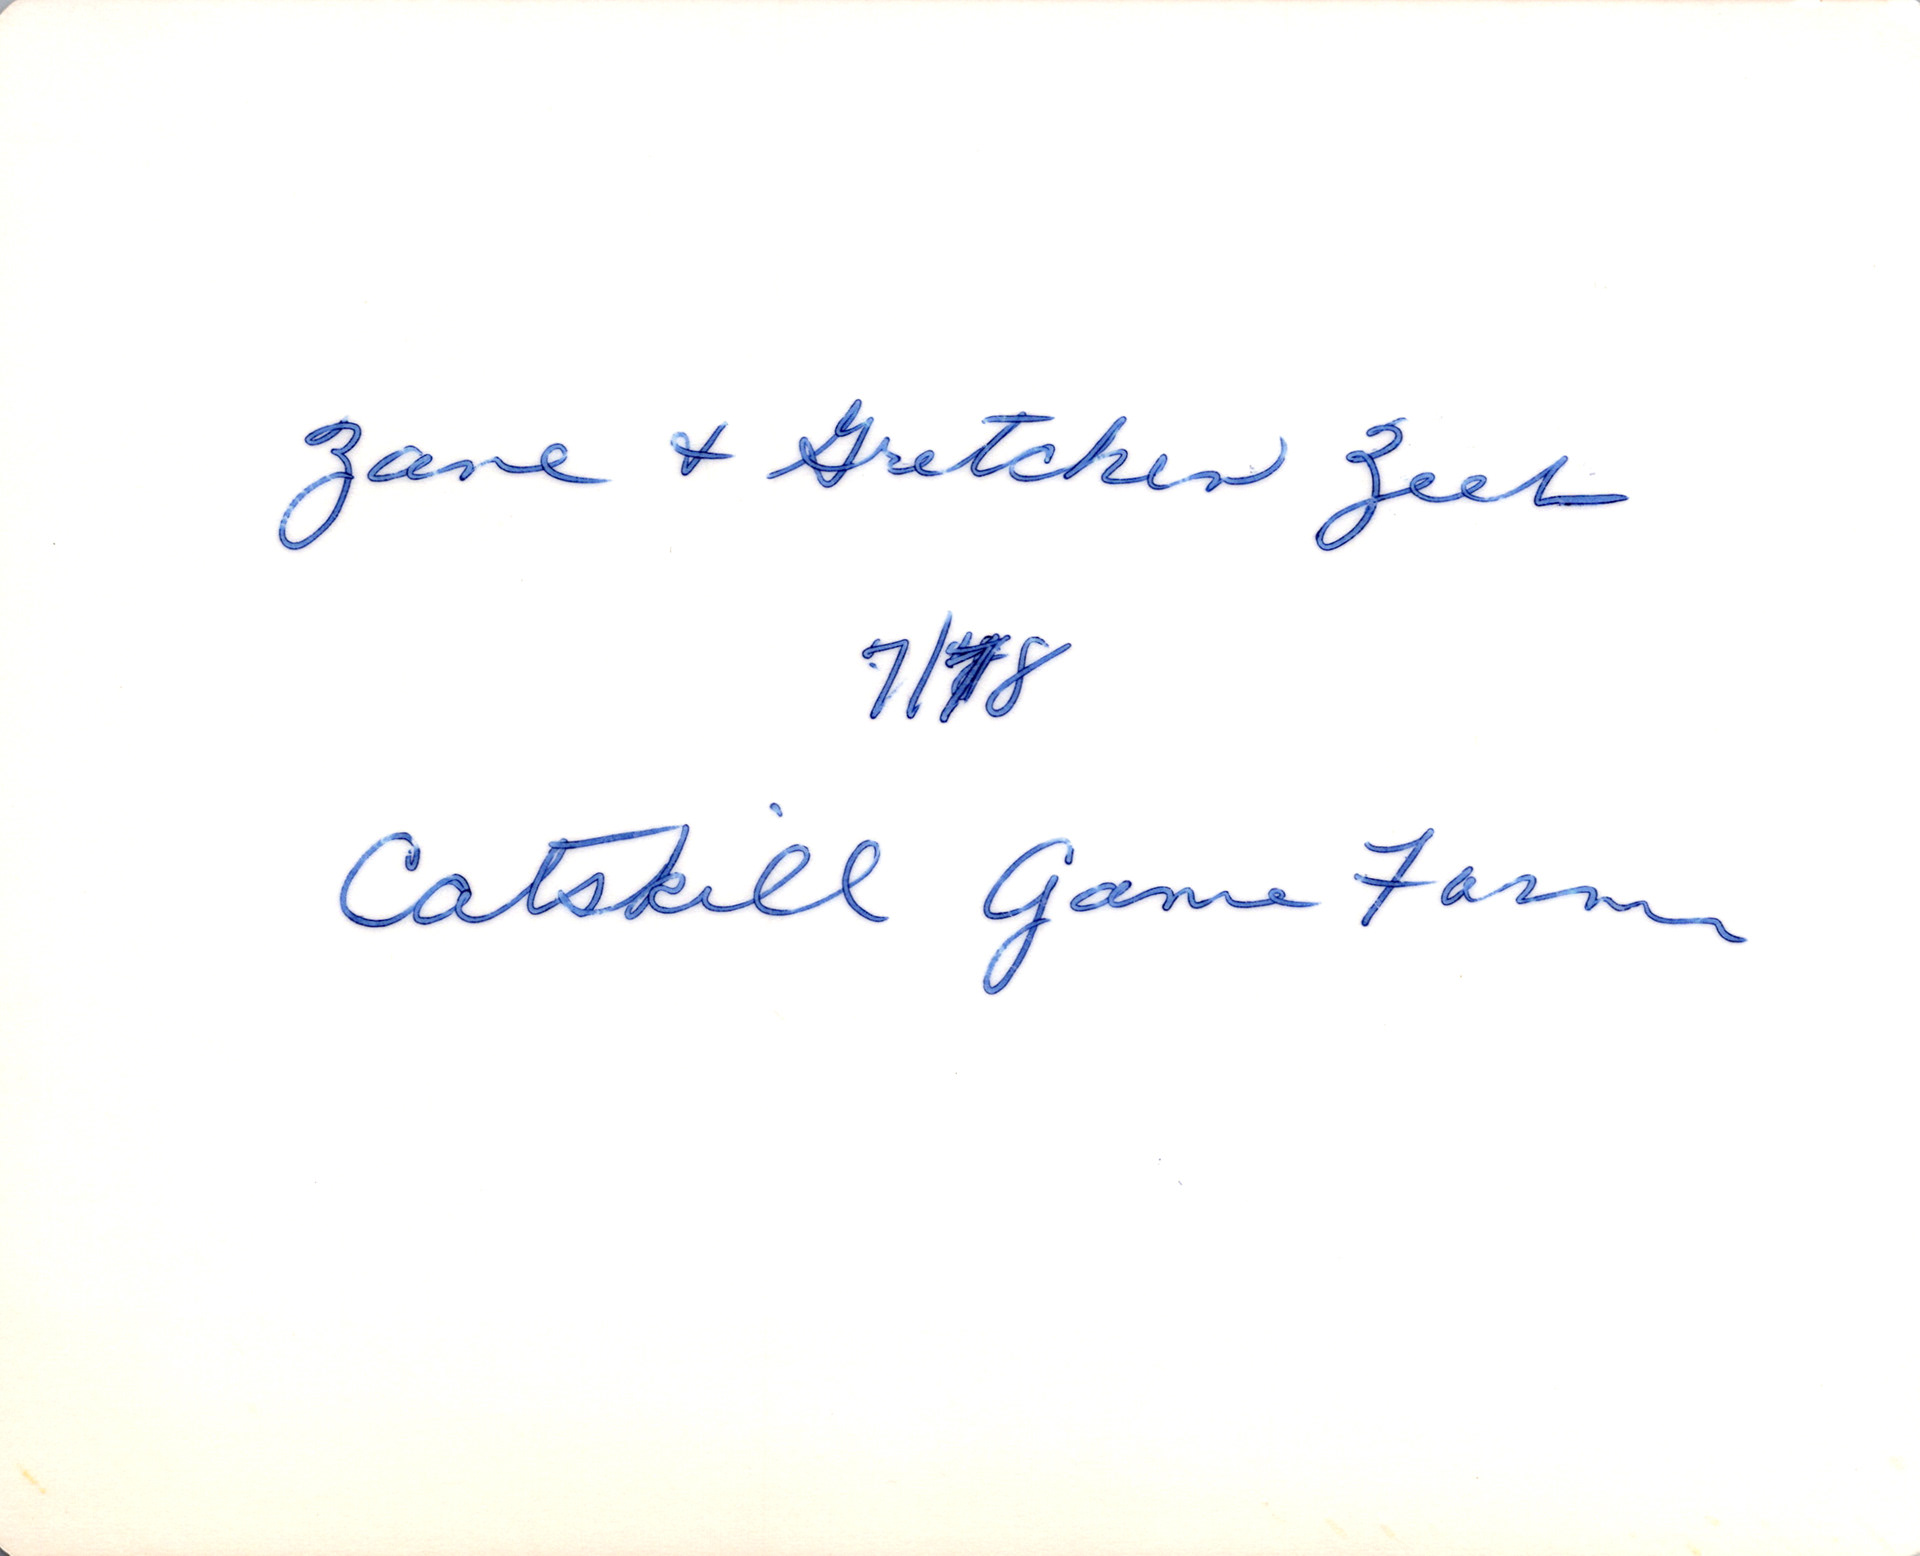 Zane & Gretchen Zeeh
7/78
Catskill Game Farm